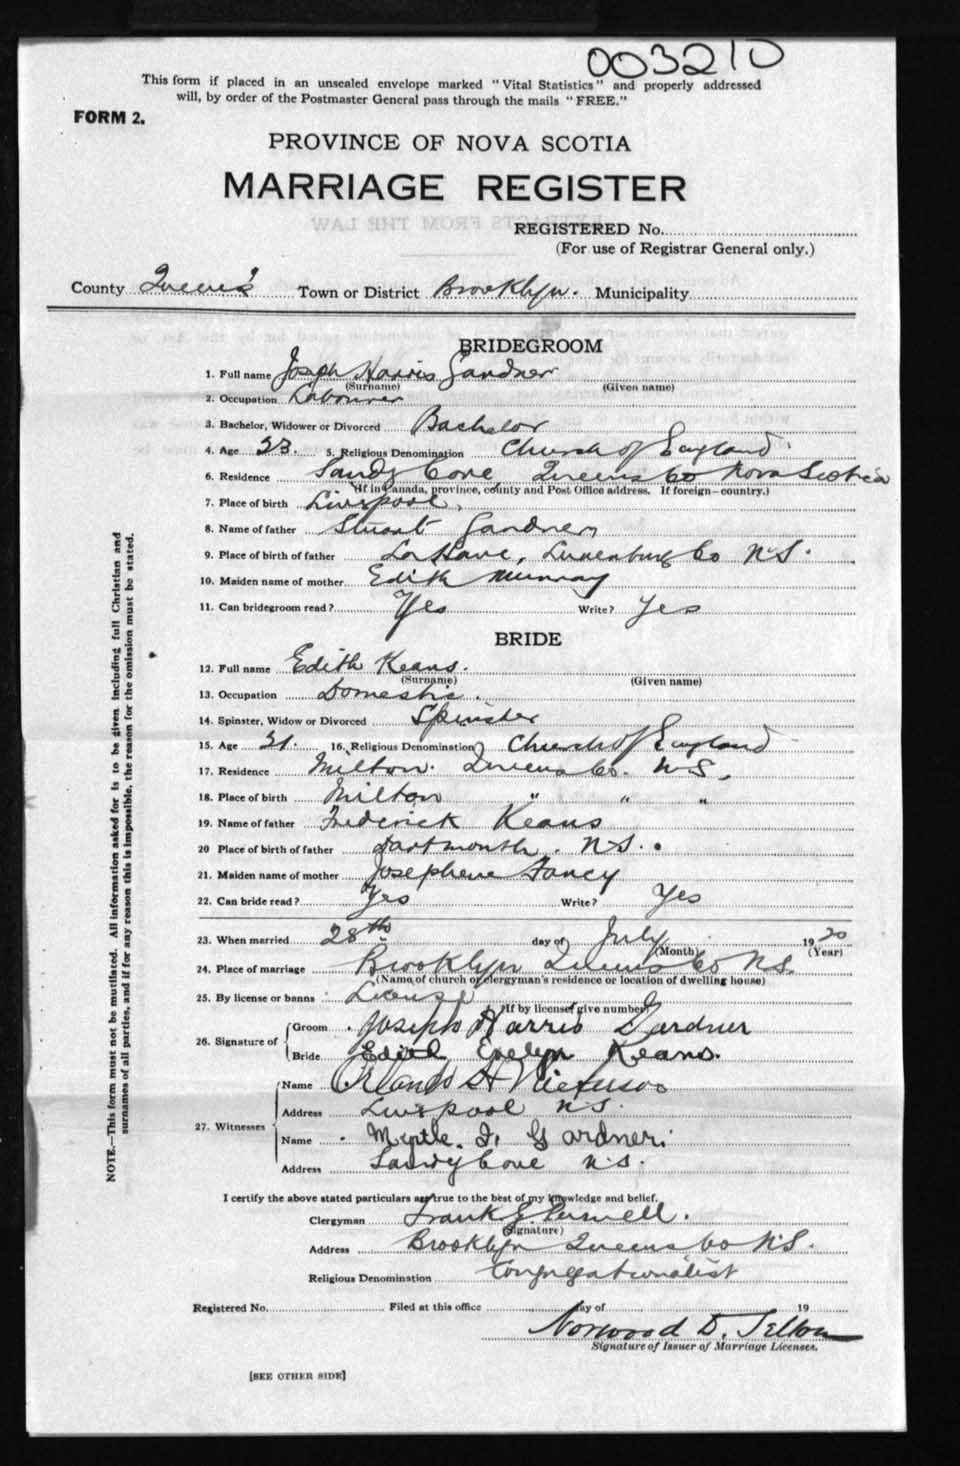 003210
This form if placed in an unsealed envelope marked "Vital Statistics" and properly addressed
will, by order of the Postmaster General pass through the mails "FREE."
FORM 2.
PROVINCE OF NOVA SCOTIA
MARRIAGE REGISTER
EXTRACTS FROM THE LAW
REGISTERED No.
(For use of Registrar General only.)
County Queen's Town or District Brooklyn. Municipality
BRIDEGROOM
1. Full name Joseph Harris Gardner
(Surname) (Given name)
2. Occupation Labourer
3. Bachelor, Widower or Divorced Bachelor
4. Age 23. 5. Religious Denomination Church of England
6. Residence Sandy Cove, Queens Co Nova Scotia
(If in Canada, province, county and Post Office address. If foreign—country.)
7. Place of birth Liverpool,
8. Name of father Stuart Gardner,
9. Place of birth of father La Have, Lunenburg Co N.S.
10. Maiden name of mother Edith Murray
11. Can bridegroom read? Yes Write? Yes
BRIDE
12. Full name Edith Keans.
(Surname) (Given name)
13. Occupation Domestic.
14. Spinster, Widow or Divorced Spinster
15. Age 21. 16. Religious Denomination Church of England
17. Residence Milton. Queens Co. N.S.
18. Place of birth Milton " " "
19. Name of father Frederick Keans
20 Place of birth of father Dartmouth. N.S.
21. Maiden name of mother Josephene Fancy
22. Can bride read? Yes Write? Yes
23. When married 28th day of July 1920
(Month) (Year)
24. Place of marriage Brooklyn Queens Co N.S.
(Name of church or clergyman's residence or location of dwelling house)
25. By license or banns License
(If by license, give number)
26. Signature of Groom Joseph Harris Gardner
Bride Edith Evelyn Keans.
27. Witnesses Name H
Address Liverpool N.S.
Name Myrtle. Gardner.
Address Sandy Cove N.S.
I certify the above stated particulars are true to the best of my knowledge and belief.
Clergyman Frank E. Purnell.
(Signature)
Address Brooklyn Queens Co N.S.
Religious Denomination Congregationalist
Registered No. Filed at this office day of 19
Norwood D.
Signature of Issuer of Marriage Licenses.
[SEE OTHER SIDE]
NOTE.—This form must not be mutilated. All information asked for is to be given including full Christian and
surnames of all parties, and if for any reason this is impossible, the reason for the omission must be stated.